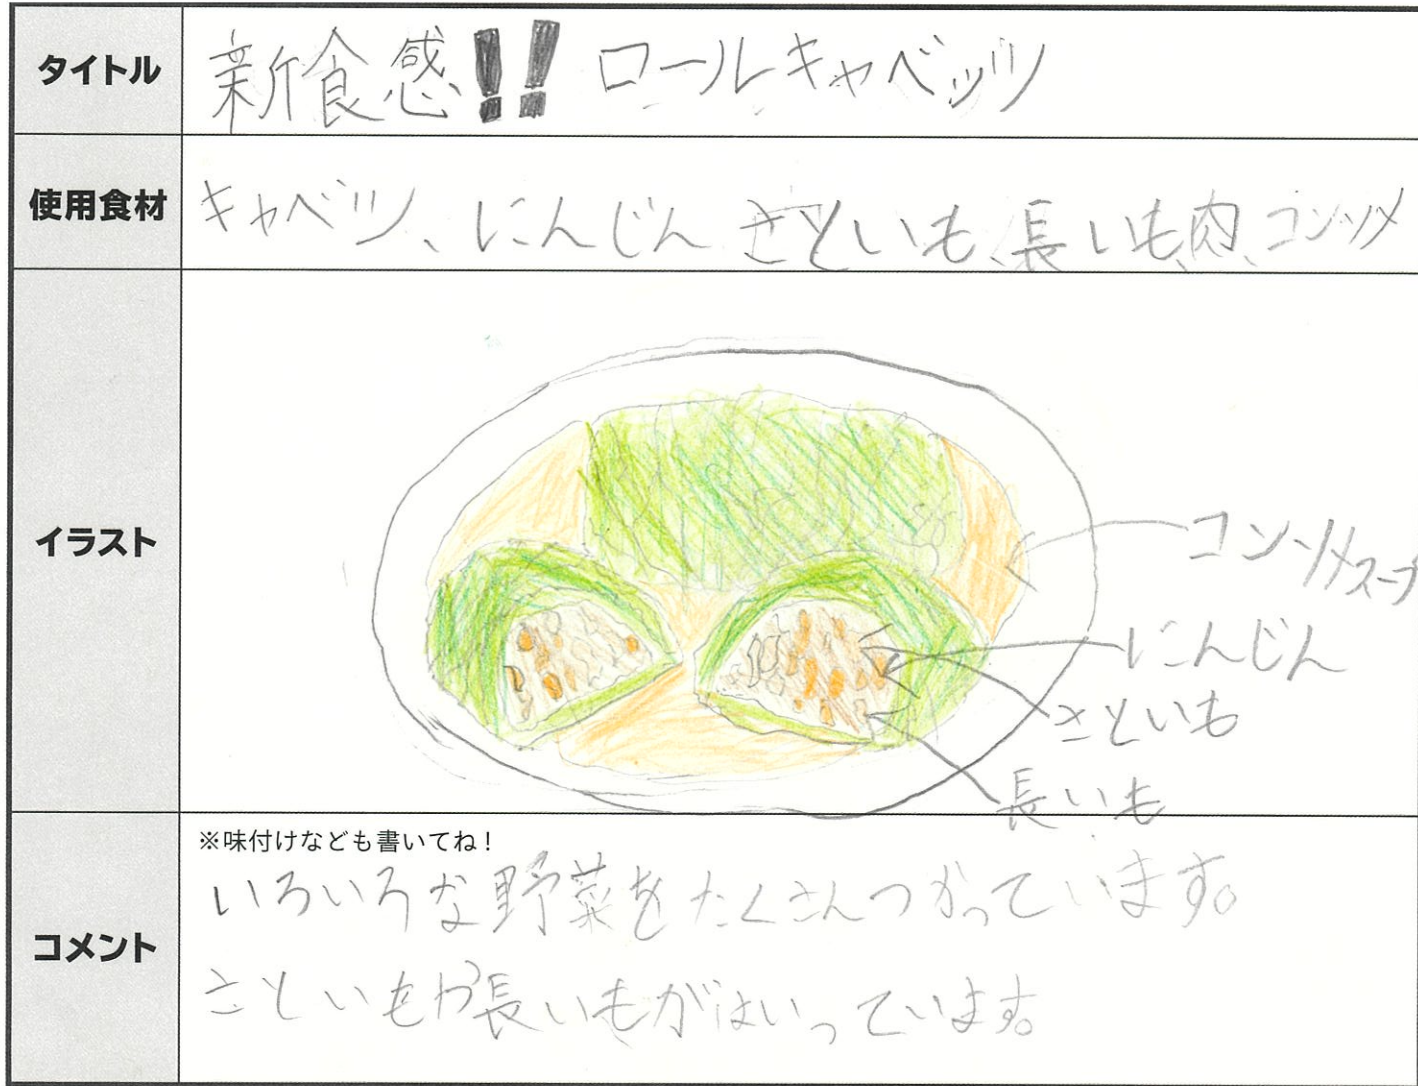 タイトル
新食感!! ロールキャベッツ
使用食材
キャベツ、にんじん さといも、長いも、肉、コンソメ
イラスト
コンソメスープ
にんじん
さといも
長いも
コメント
※味付けなども書いてね!
いろいろな野菜をたくさんつかっています。
さといもや長いもがはいっています。